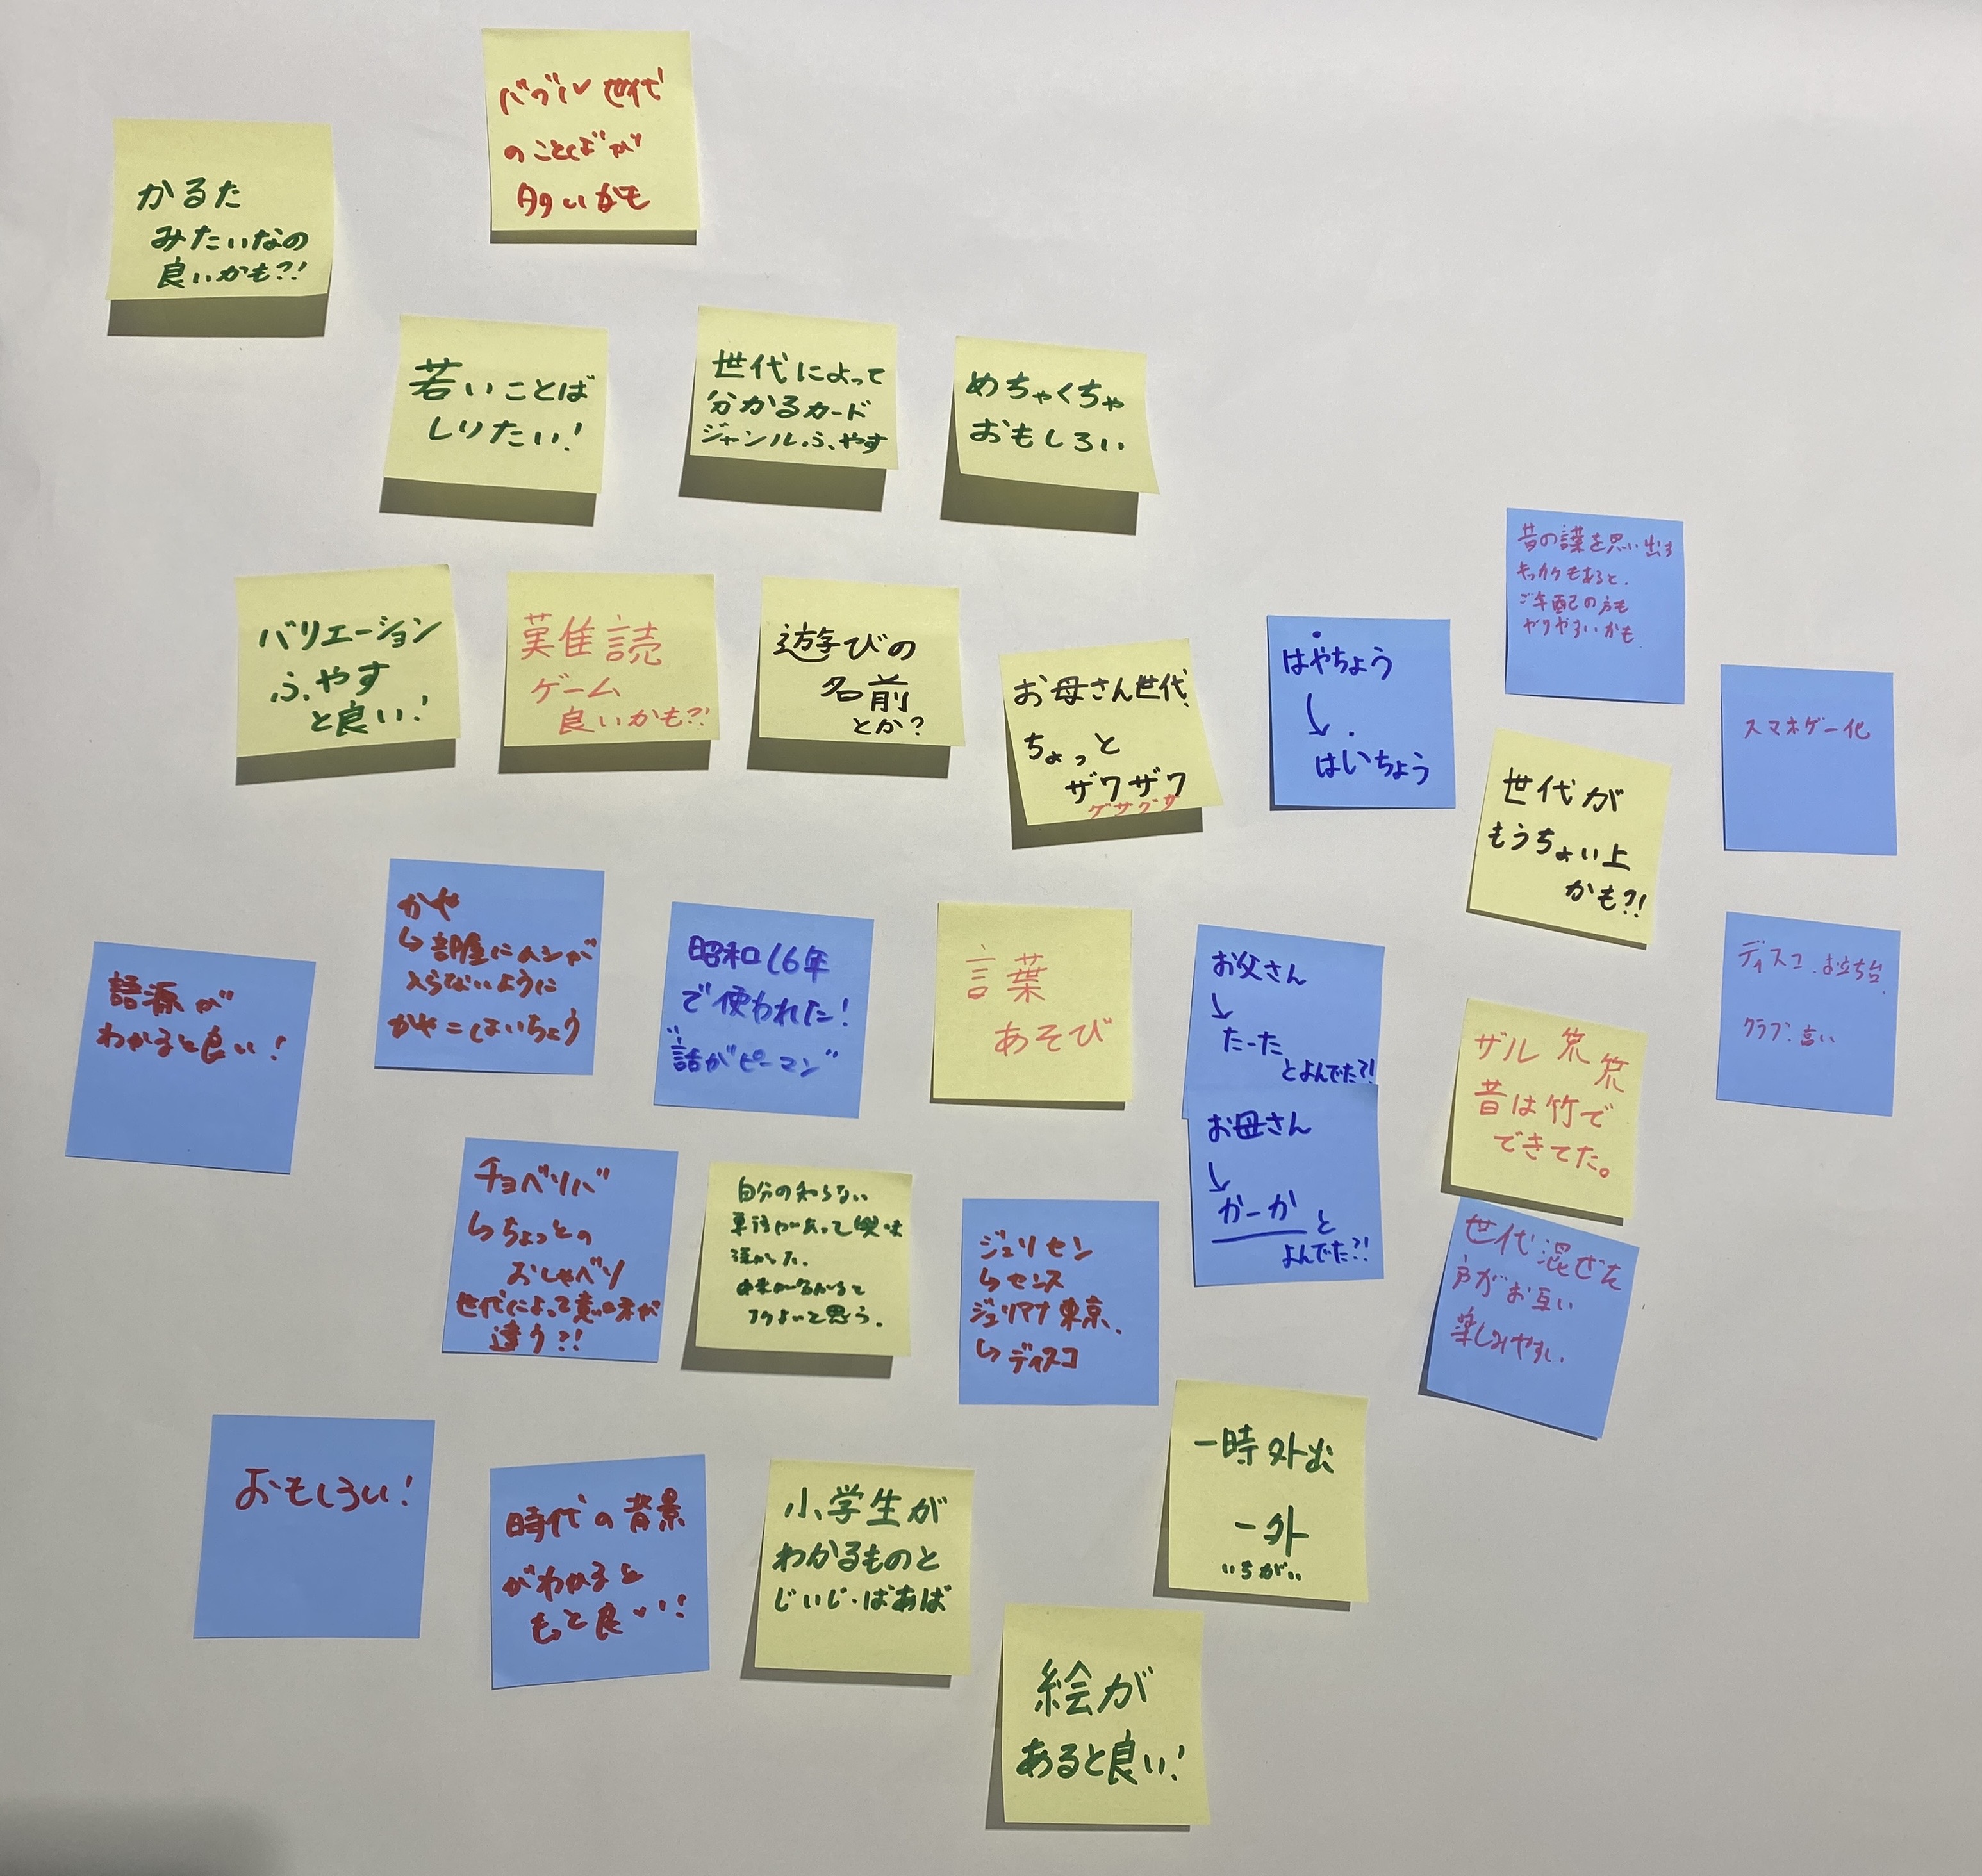 バブル世代
のことばが
多いかも
かるた
みたいなの
良いかも?!
若いことば
しりたい!
世代によって
分かるカード
ジャンルふやす
めちゃくちゃ
おもしろい
昔の言葉を思い出す
キッカケもあると、
ご年配の方も
やりやすいかも
バリエーション
ふやす
と良い!
難読
ゲーム
良いかも?!
遊びの
名前
とか?
お母さん世代
ちょっと
ザワザワ
はやちょう
はいちょう
スマホゲー化
世代が
もうちょい上
かも?!
かや
↳部屋にムシが
入らないように
かや=はいちょう
昭和16年
で使われた!
"話がピーマン"
言葉
あそび
お父さん
↓
たーた
とよんでた?!
ディスコ、お立ち台
クラブ:
語源が
わかると良い!
ザル 笊 笊
昔は竹で
できてた。
お母さん
↓
かーか と
よんでた?!
チョベリバ
↳ちょっとの
おしゃべり
世代によって意味が
違う?!
自分の知らない
単語があって興味
深かった。
と思う。
ジュリセン
↳センス
ジュリアナ東京、
↳ディスコ
世代混ぜた
方がお互い
楽しみやすい
おもしろい!
時代の背景
がわかると
もっと良い!
小学生が
わかるものと
じいじ・ばあば
一時外出
一外
いちがい
絵が
あると良い!